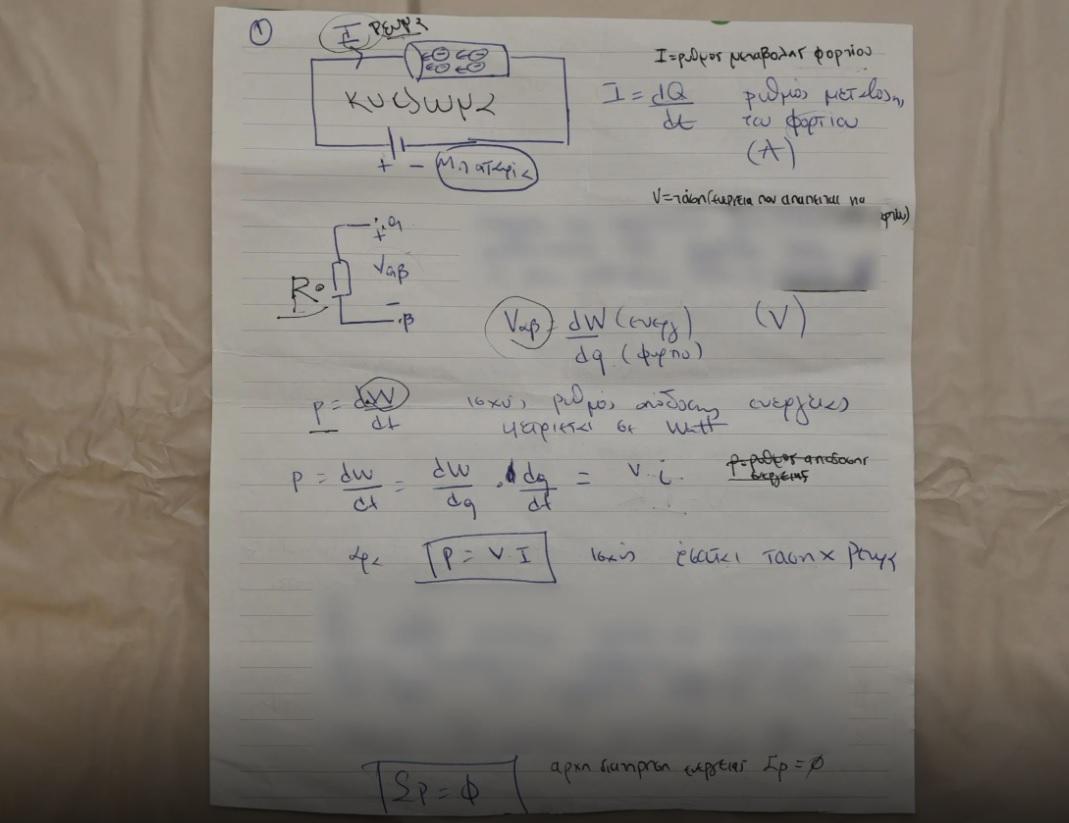 ①
I ρευμα
κυκλωμα
+ - Μπαταρια
I=ρυθμος μεταβολης φορτιου
I = dQ/dt ρυθμός μεταβολης
του φορτιου
(A)
V=τάση(ενεργεια που απαιτειται για
+ α
Vαβ
R
- β
Vαβ = dW (ενεργ) / dq (φορτιο) (V)
p = dW/dt ισχύς ρυθμός απόδοσης ενεργειας
μετριεται σε Watt
p = dw/dt = dw/dq · dq/dt = v·i
p=ρυθμος αποδοσης
ενεργειας
αρα P = V·I ισχύς ταση x ρευμα
Σp = φ
αρχη διατηρηση ενεργειας Σp = φ